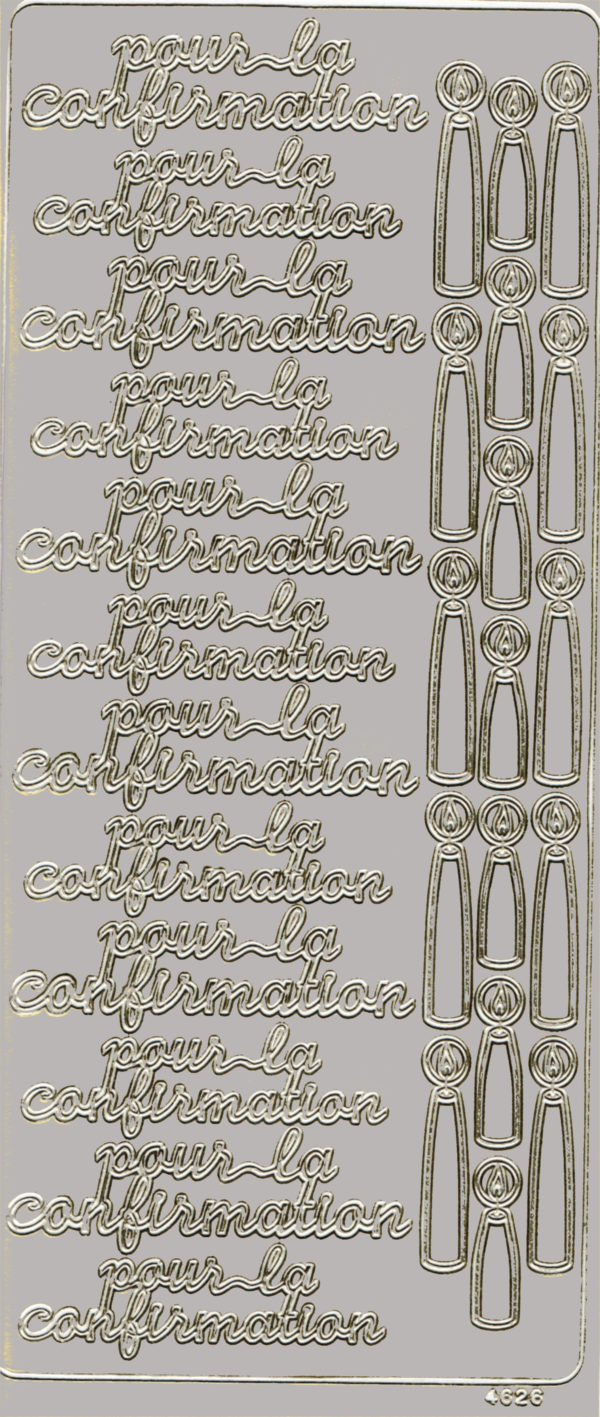 pour la
confirmation
pour la
confirmation
pour la
confirmation
pour la
confirmation
pour la
confirmation
pour la
confirmation
pour la
confirmation
pour la
confirmation
pour la
confirmation
pour la
confirmation
pour la
confirmation
pour la
confirmation
4626